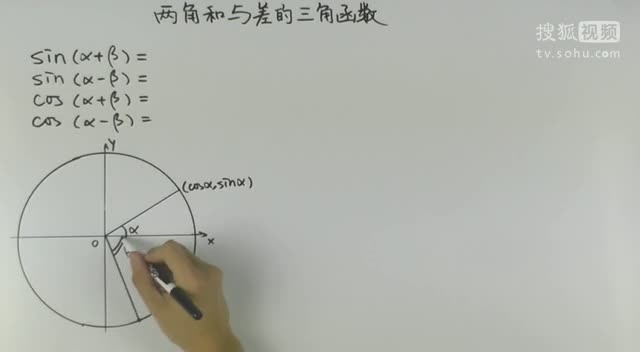 两角和与差的三角函数
搜狐视频
tv.sohu.com
sin(α+β)=
sin(α-β)=
cos(α+β)=
cos(α-β)=
y
(cosα,sinα)
α
O
x